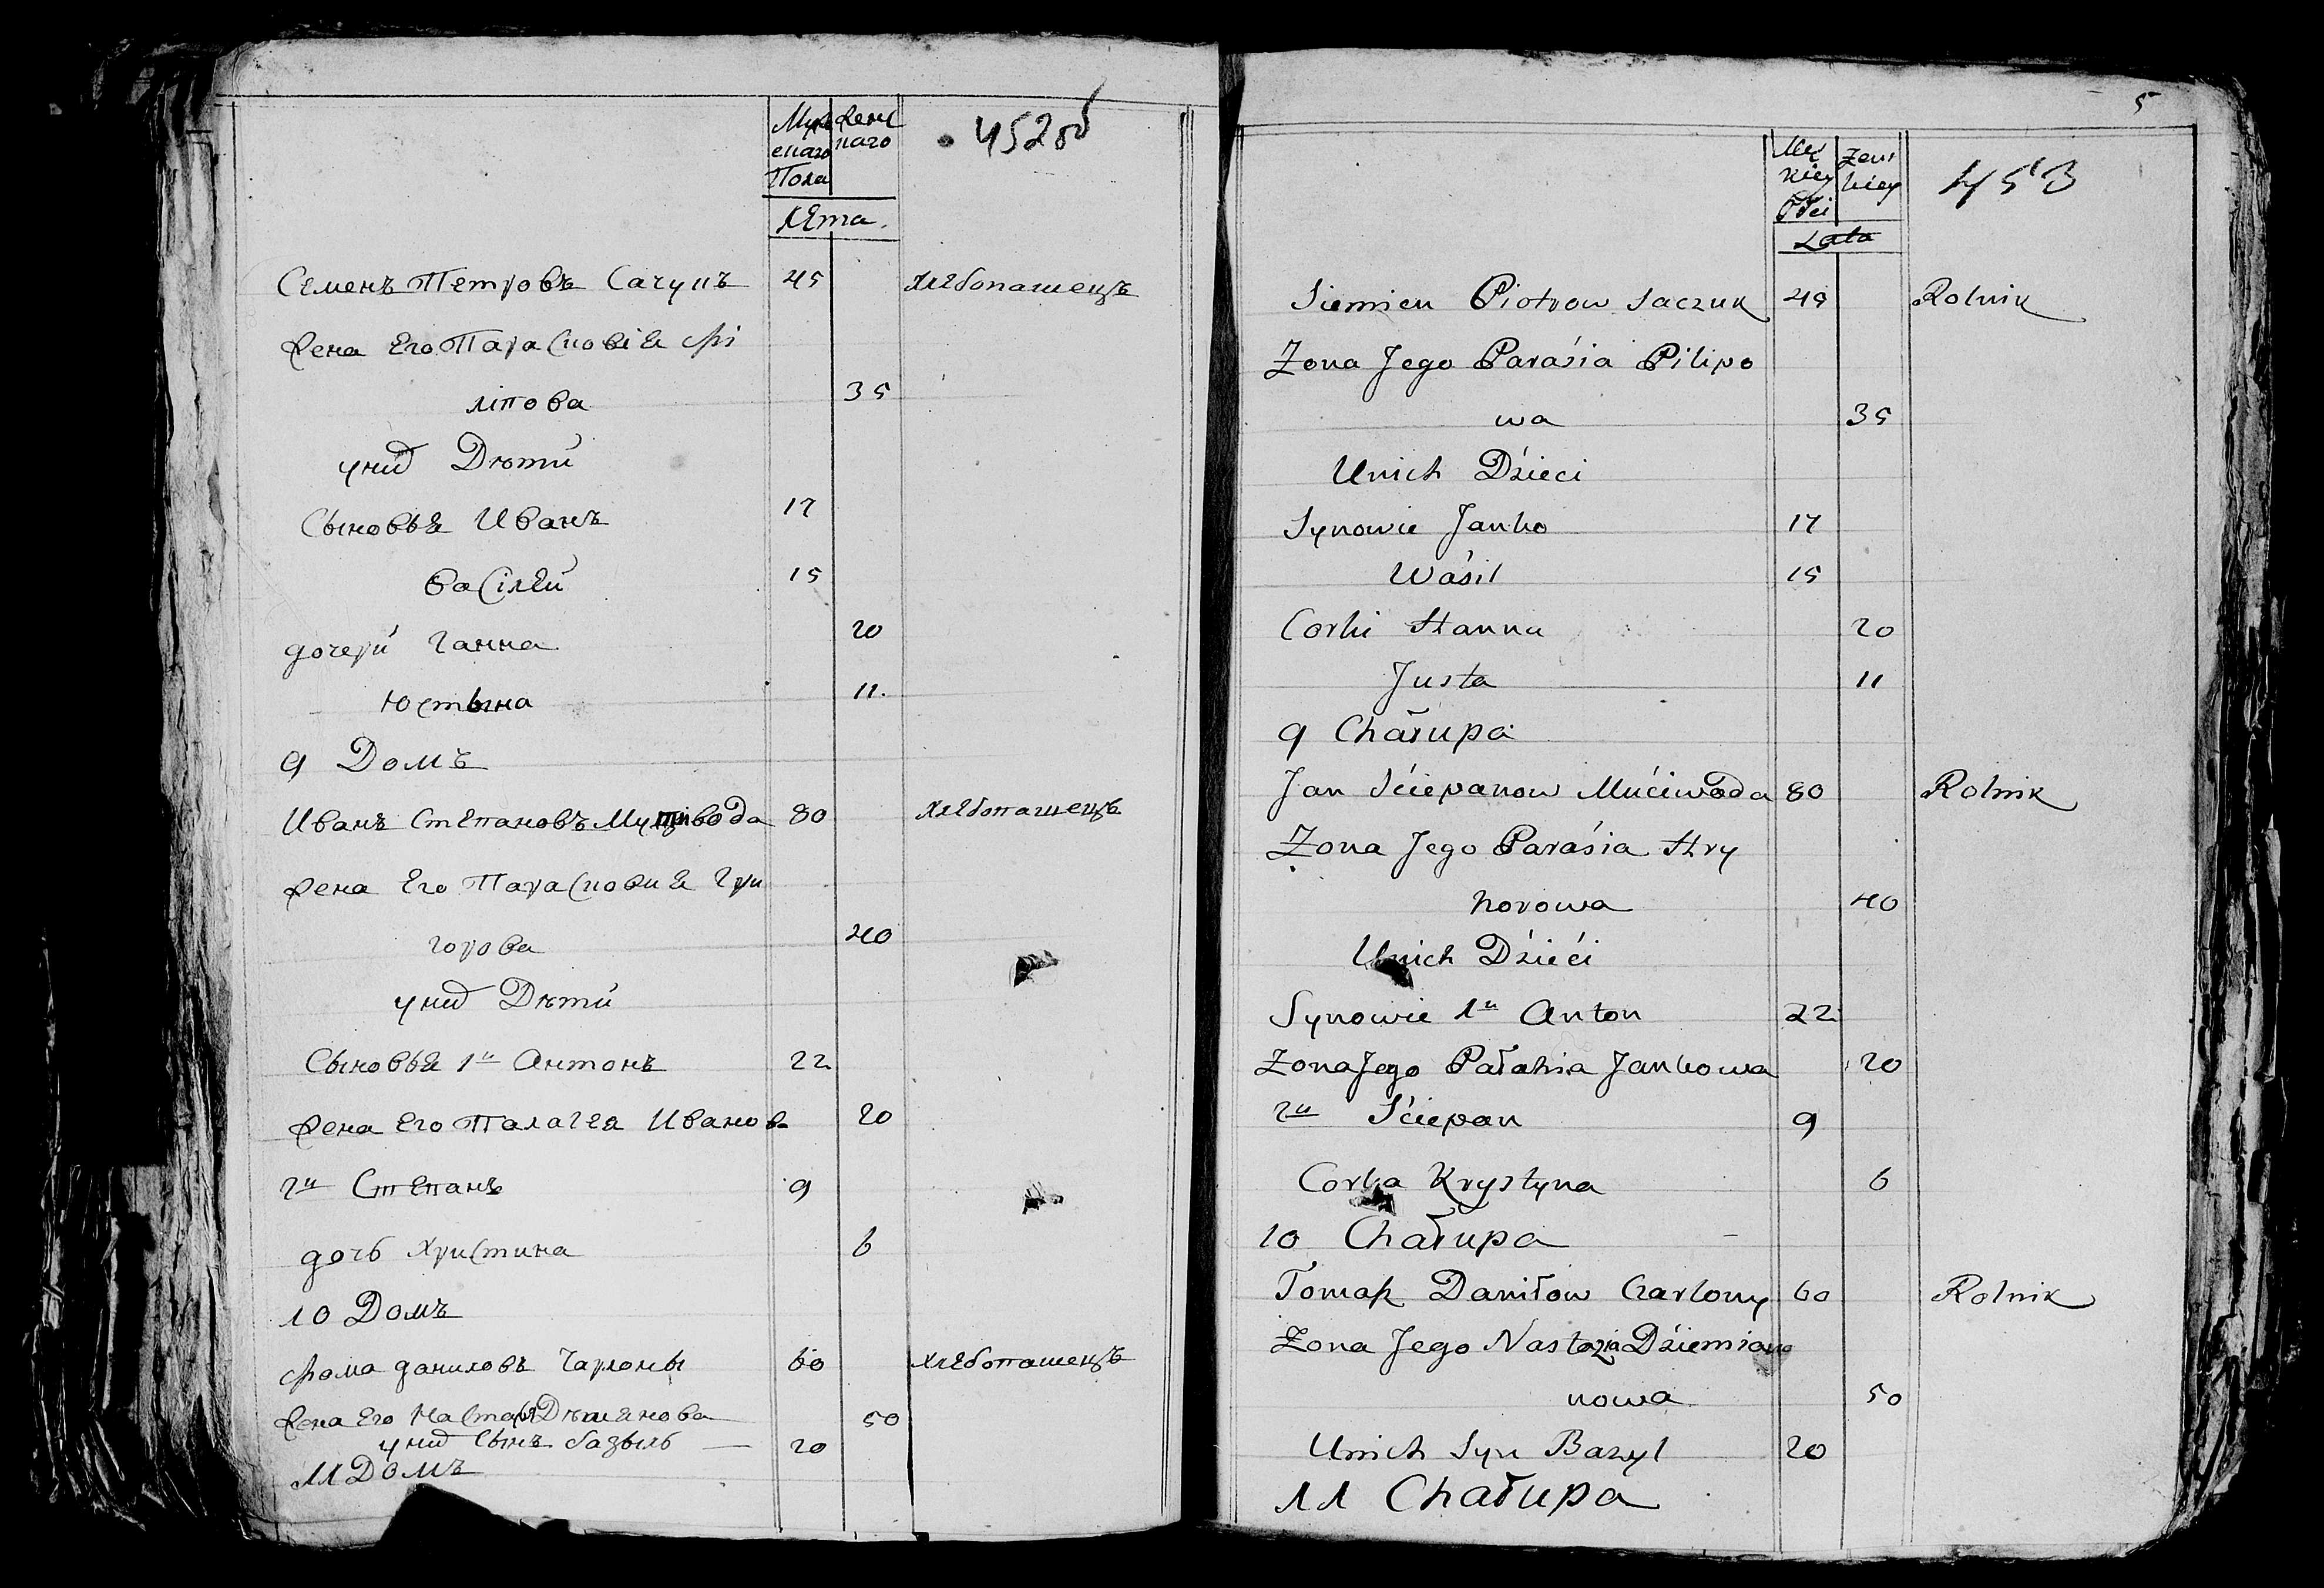 Муж Жен
скаго скаго
Пола
лѣта.
452об
Семенъ Петровъ Сачукъ 45 Хлебопашецъ
Жена Его Парасковія Фи
ліпова 35
у них Дѣти
Сыновья Иванъ 17
василей 15
дочери Ганна 20
Юстына 11.
9 Домъ
Иванъ Степановъ Мутивода 80 Хлебопашецъ
Жена Его Парасковия Гри
горова 40
у них Дѣти
Сыновья 1й Антонъ 22
Жена Его Палагея Иванова 20
2й Степанъ 9
дочь Христина 6
10 Домъ
Фома даниловъ Чарлоны 60 Хлебопашецъ
Жена Его Настася Дѣмянова 50
у них Сынъ базыль — 20
11 Домъ
5
Mę Zens
skiey kiey
Płci
Lata
453
Siemien Piotrow Saczuk 45 Rolnik
Zona Jego Paraśia Pilipo
wa 35
Unich Dźieci
Synowie Janko 17
Waśil 15
Corki Hanna 20
Justa 11
9 Chałupa
Jan Śćiepanow Mućiwoda 80 Rolnik
Zona Jego Paraśia Hry
horowa 40
Unich Dźiećі
Synowie 1й Anton 22
Zona Jego Pałahia Jankowa 20
2й Śćiepan 9
Corka Krystyna 6
10 Chałupa
Tomaſz Daniłow Czarlony 60 Rolnik
Zona Jego Nastazia Dźiemiano
nowa 50
Unich Syn Bazyl 20
11 Chałupa